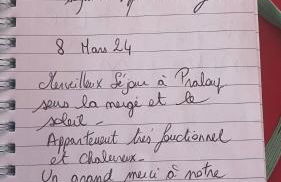 8 Mars 24
Merveilleux Séjour à Pralay
sous la neige et le
soleil -
Appartement très fonctionnel
et chaleureux -
Un grand merci à notre